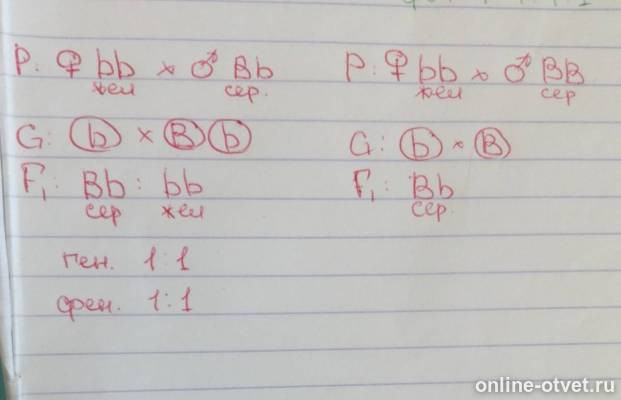 P: ♀ bb × ♂ Bb
жел сер.
G: b × B b
F₁: Bb : bb
сер жел
ген. 1:1
фен. 1:1
P: ♀ bb × ♂ BB
жел сер
G: b × B
F₁: Bb
сер.
online-otvet.ru